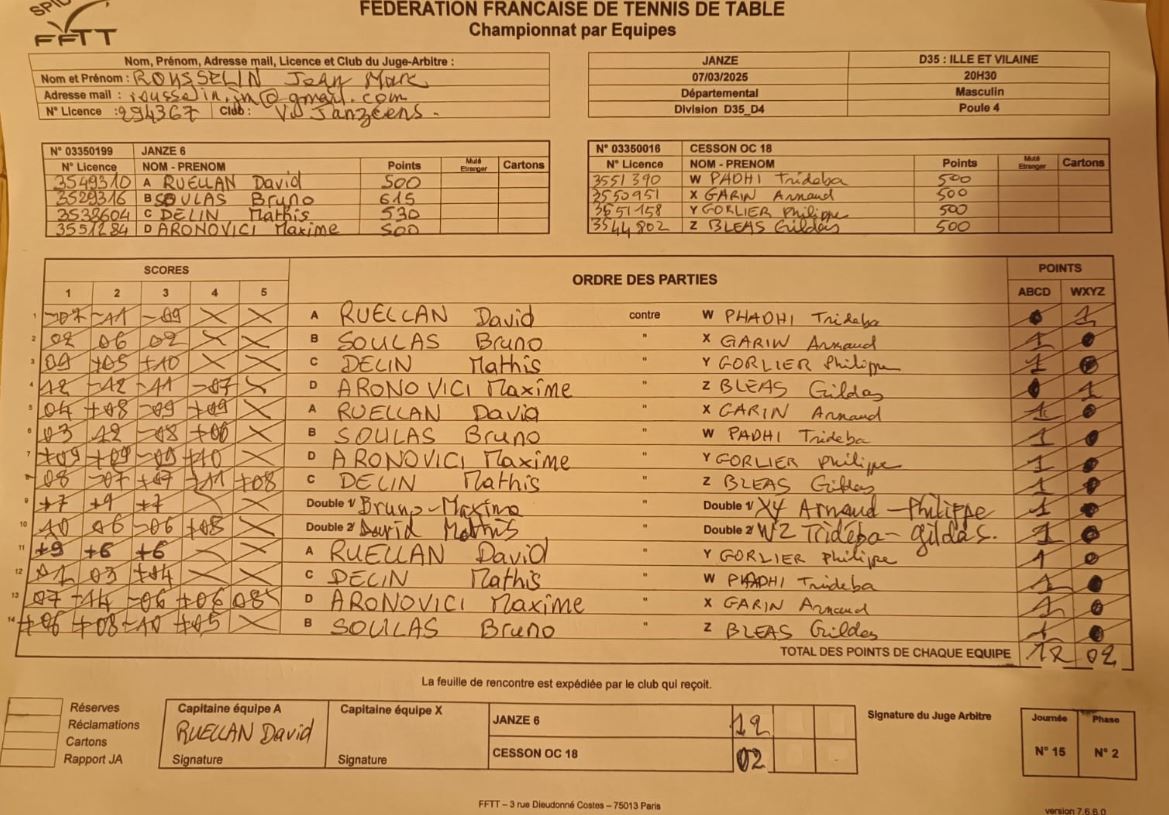 SPID
FFTT
FÉDÉRATION FRANCAISE DE TENNIS DE TABLE
Championnat par Equipes
Nom, Prénom, Adresse mail, Licence et Club du Juge-Arbitre :
Nom et Prénom : ROUSSELIN Jean Marc
Adresse mail : rousselin.jm@gmail.com
N° Licence : 294367 Club : Janzéens.
JANZE D35 : ILLE ET VILAINE
07/03/2025 20H30
Départemental Masculin
Division D35_D4 Poule 4
N° 03350199 JANZE 6
N° Licence NOM - PRENOM Points Muté Etranger Cartons
3549310 A RUELLAN David 500
3529316 B SOULAS Bruno 615
3538604 C DELIN Mathis 530
3551284 D ARONOVICI Maxime 500
N° 03350016 CESSON OC 18
N° Licence NOM - PRENOM Points Muté Etranger Cartons
3551390 W PADHI Trideba 500
3550951 X GARIN Arnaud 500
3551158 Y GORLIER Philippe 500
3544802 Z BLEAS Gildas 500
SCORES ORDRE DES PARTIES POINTS
1 2 3 4 5 ABCD WXYZ
1 -07 -11 -09 X X A RUELLAN David contre W PHADHI Trideba 0 1
2 02 06 02 X X B SOULAS Bruno " X GARIN Arnaud 1 0
3 09 +05 +10 X X C DELIN Mathis " Y GORLIER Philippe 1 0
4 12 -12 -11 -07 X D ARONOVICI Maxime " Z BLEAS Gildas 0 1
5 04 +08 -09 +09 X A RUELLAN David " X GARIN Arnaud 1 0
6 03 12 -08 +06 X B SOULAS Bruno " W PADHI Trideba 1 0
7 +09 +09 -05 +10 X D ARONOVICI Maxime " Y GORLIER Philippe 1 0
8 08 -07 +07 -11 +08 C DELIN Mathis " Z BLEAS Gildas 1 0
9 +7 +9 +7 Double 1/ Bruno - Maxime " Double 1/ XY Arnaud - Philippe 1 0
10 10 06 -06 +08 X Double 2/ David Mathis " Double 2/ WZ Trideba - Gildas. 1 0
11 +9 +6 +6 A RUELLAN David " Y GORLIER Philippe 1 0
12 01 03 +04 X X C DELIN Mathis " W PHADHI Trideba 1 0
13 07 -14 -06 +06 08 D ARONOVICI Maxime " X GARIN Arnaud 1 0
14 +06 +08 -10 +05 X B SOULAS Bruno " Z BLEAS Gildas 1 0
TOTAL DES POINTS DE CHAQUE EQUIPE 12 02
La feuille de rencontre est expédiée par le club qui reçoit.
Réserves
Réclamations
Cartons
Rapport JA
Capitaine équipe A
RUELLAN David
Signature
Capitaine équipe X
Signature
JANZE 6 12
CESSON OC 18 02
Signature du Juge Arbitre
Journée Phase
N° 15 N° 2
FFTT – 3 rue Dieudonné Costes – 75013 Paris
version 7.6.6.0